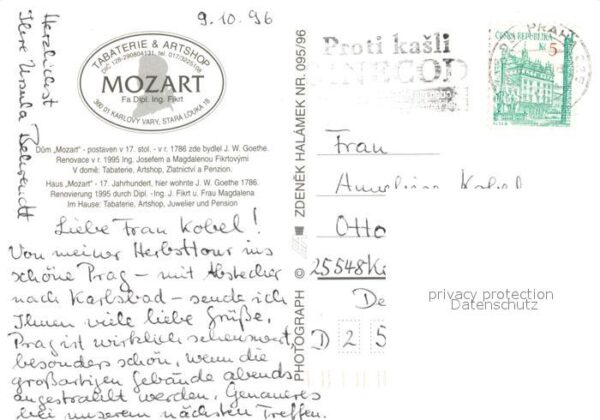 9.10.96
TABATERIE & ARTSHOP
DIČ 128-290804131, tel. 017/3225108
MOZART
Fa Dipl. Ing. Fikrt
360 01 KARLOVY VARY, STARÁ LOUKA 18
Dům „Mozart" - postaven v 17. stol. - v r. 1786 zde bydlel J. W. Goethe.
Renovace v r. 1995 Ing. Josefem a Magdalenou Fikrtovými
V domě: Tabaterie, Artshop, Zlatnictví a Penzion.
Haus „Mozart" - 17. Jahrhundert, hier wohnte J. W. Goethe 1786.
Renovierung 1995 durch Dipl. -Ing. J. Fikrt u. Frau Magdalena
Im Hause: Tabaterie, Artshop, Juwelier und Pension
Liebe Frau Kobel!
Von meiner Herbsttour ins
schöne Prag – mit Abstecher
nach Karlsbad – sende ich
Ihnen viele liebe Grüße.
Prag ist wirklich sehenswert,
besonders schön, wenn die
großartigen Gebäude abends
angestrahlt werden. Genaueres
bei unserem nächsten Treffen.
Herzlichst
Ihre Ursula Behrendt
PHOTOGRAPH © ZDENĚK HALÁMEK NR. 095/96
Proti kašli
SINECOD
PRAHA
ČESKÁ REPUBLIKA
Kč 5
Frau
Kobel
Otto
25548 Ke
De
D 2 5
privacy protection
Datenschutz